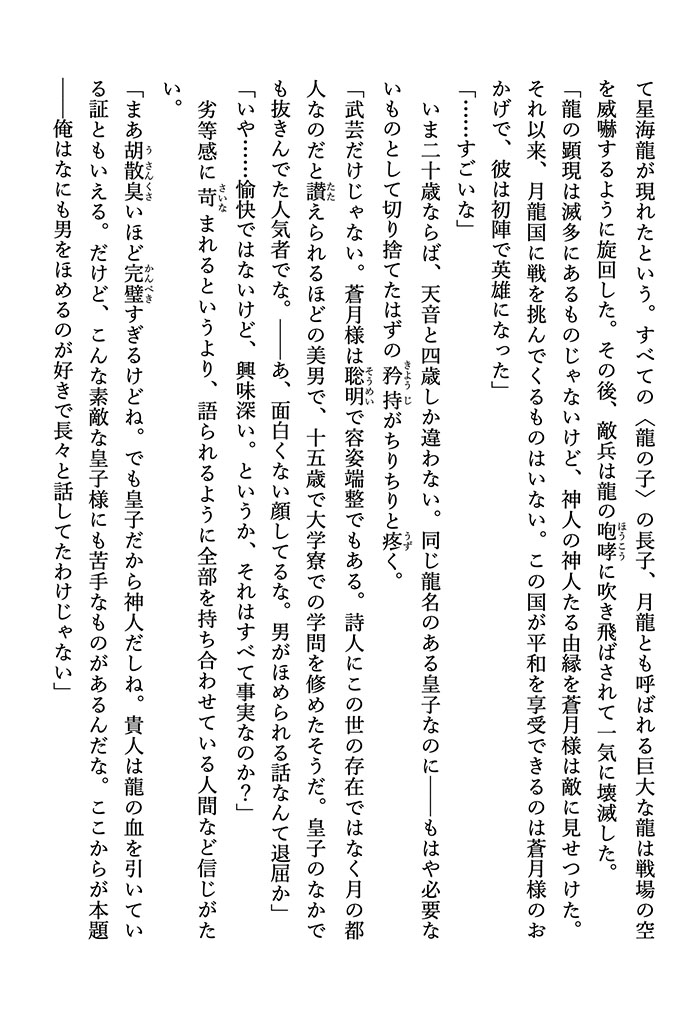 て星海龍が現れたという。すべての〈龍の子〉の長子、月龍とも呼ばれる巨大な龍は戦場の空
を威嚇するように旋回した。その後、敵兵は龍の咆哮に吹き飛ばされて一気に壊滅した。
「龍の顕現は滅多にあるものじゃないけど、神人の神人たる由縁を蒼月様は敵に見せつけた。
それ以来、月龍国に戦を挑んでくるものはいない。この国が平和を享受できるのは蒼月様のお
かげで、彼は初陣で英雄になった」
「……すごいな」
いま二十歳ならば、天音と四歳しか違わない。同じ龍名のある皇子なのに――もはや必要な
いものとして切り捨てたはずの矜持がちりちりと疼く。
「武芸だけじゃない。蒼月様は聡明で容姿端整でもある。詩人にこの世の存在ではなく月の都
人なのだと讃えられるほどの美男で、十五歳で大学寮での学問を修めたそうだ。皇子のなかで
も抜きんでた人気者でな。――あ、面白くない顔してるな。男がほめられる話なんて退屈か」
「いや……愉快ではないけど、興味深い。というか、それはすべて事実なのか？」
劣等感に苛まれるというより、語られるように全部を持ち合わせている人間など信じがた
い。
「まあ胡散臭いほど完璧すぎるけどね。でも皇子だから神人だしね。貴人は龍の血を引いてい
る証ともいえる。だけど、こんな素敵な皇子様にも苦手なものがあるんだな。ここからが本題
――俺はなにも男をほめるのが好きで長々と話してたわけじゃない」